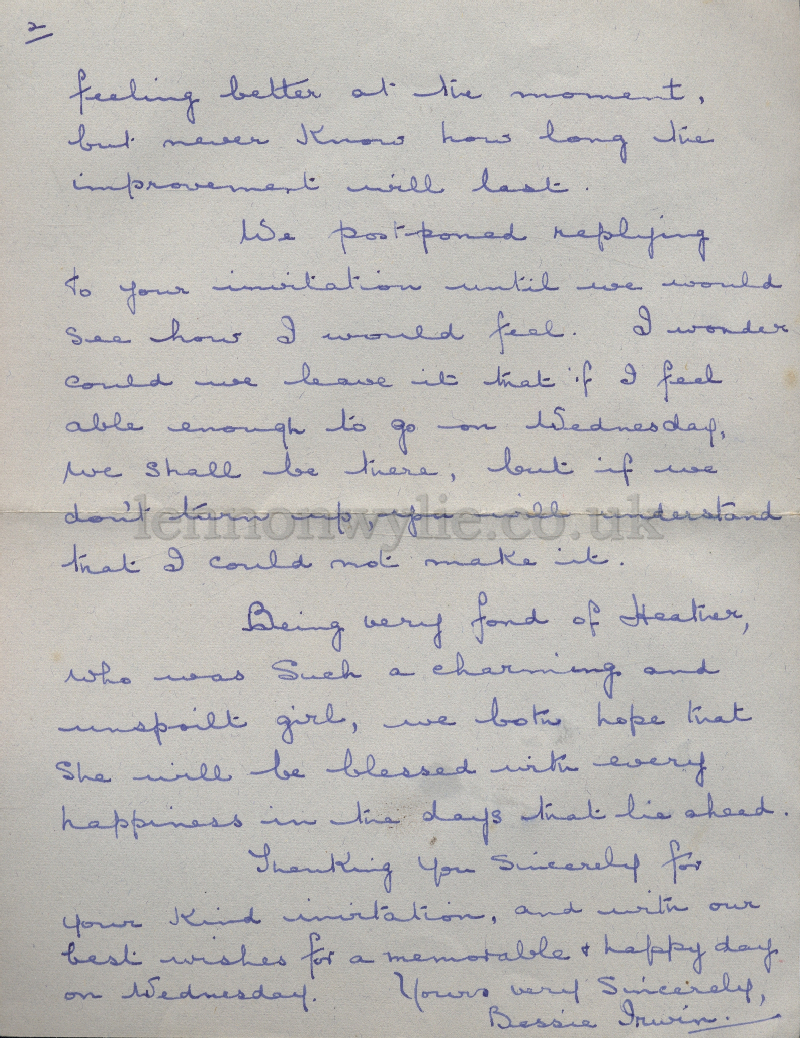 2
feeling better at the moment,
but never know how long the
improvement will last.
We postponed replying
to your invitation until we would
see how I would feel. I wonder
could we leave it that if I feel
able enough to go on Wednesday,
we shall be there, but if we
don't turn up, you will understand
lennonwylie.co.uk
that I could not make it.
Being very fond of Heather,
who was such a charming and
unspoilt girl, we both hope that
she will be blessed with every
happiness in the days that lie ahead.
Thanking you sincerely for
your kind invitation, and with our
best wishes for a memorable & happy day
on Wednesday. Yours very Sincerely,
Bessie Irwin.